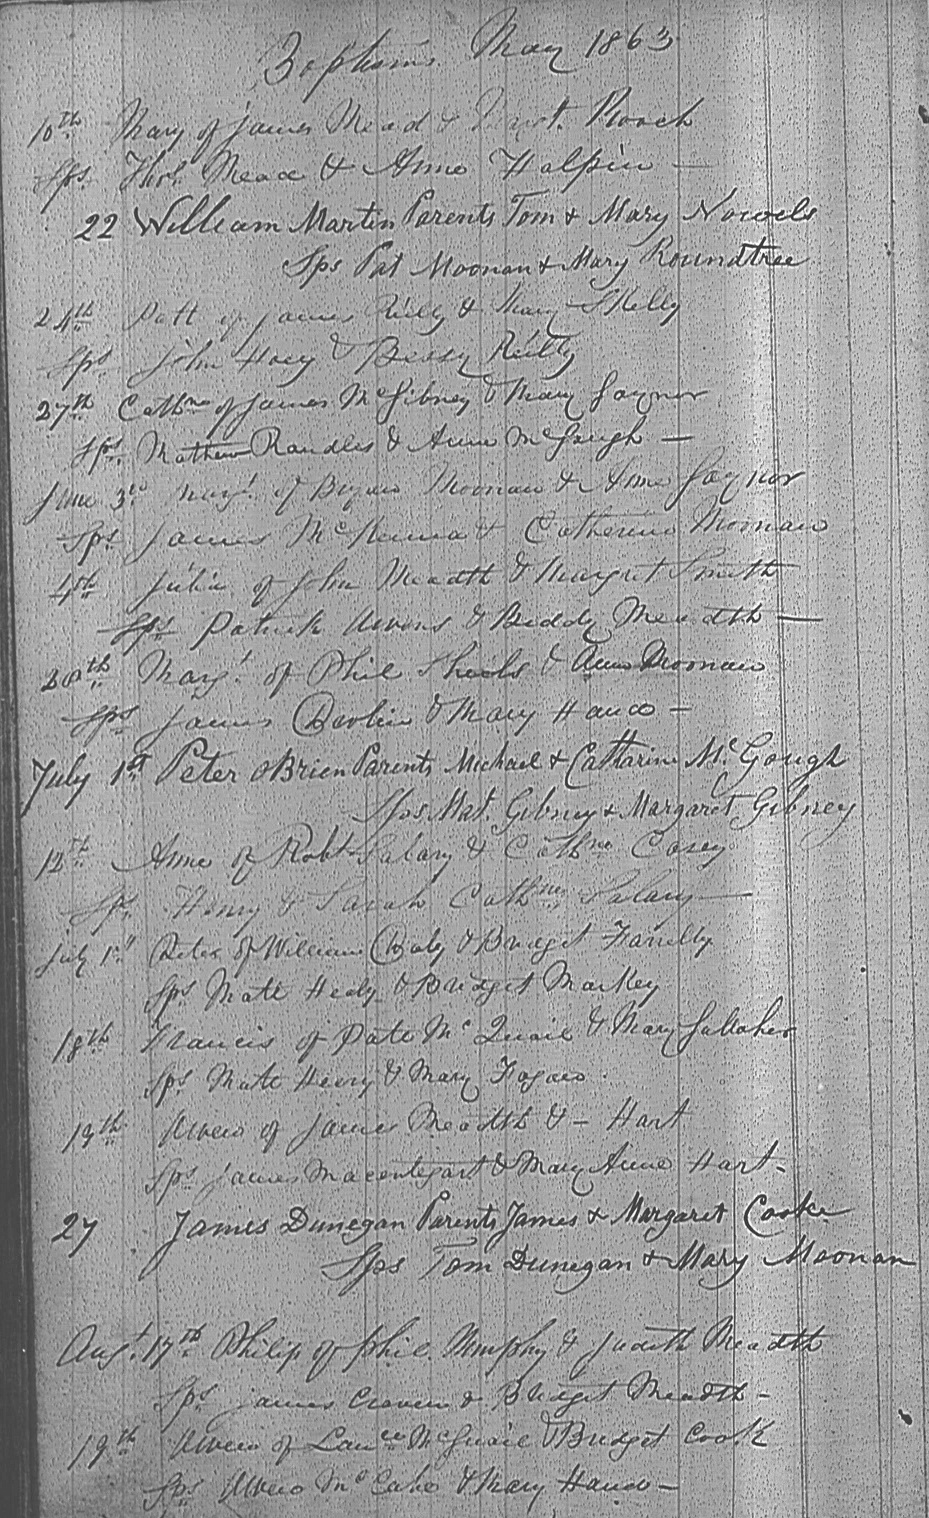 Baptisms May 1863
10th Mary of James Mead & Roach
Sps Thos. Meade & Anne Halpin —
22 William Martin Parents Tom & Mary Nowels
Sps Pat Moonan & Mary Roundtree
24th Patt of James Reilly & Mary Skelly
Sps John Hoey & Bessy Reilly
27th Cathne of James McGibney & Mary Gaynor
Sps. Mathew Randles & Anne McGough —
June 3rd Margt. of Bryan Moonan & Anne Gaynor
Sps James McKenna & Catherine Moonan
4th Julia of John Meadth & Margret Smith
Sps Patrick Owens & Biddy Meadth —
28th Marg't of Phil Shiels & Anne Moonan
Sps James & Mary Hand —
July 1st Peter OBrien Parents Michael & Catharine Mc Gough
Sps Mat. Gibney & Margaret Gibney
12th Anne of Robt Salary & Cathne Casey
Sps. Henry & Sarah Cathne Salary —
July 1st Peter of William & Bridget Farrelly
Sps Matt Heely & Bridget Markey
18th Francis of Patt Mc Quail & Mary Gallaher
Sps Matt Henry & Mary Fagan
19th Owen of James Meadth & – Hart
Sps James Macentegart & Mary Anne Hart –
27 James Dunegan Parents James & Margaret Cooke
Sps Tom Dunegan & Mary Moonan
Augt. 17th Philip of Phil. Murphy & Judith Meadth
Sps James Craven & Bridget Meadth –
19th Owen of Lance McGuail & Bridget Cook
Sps Owen Mc Cabe & Mary Hand –